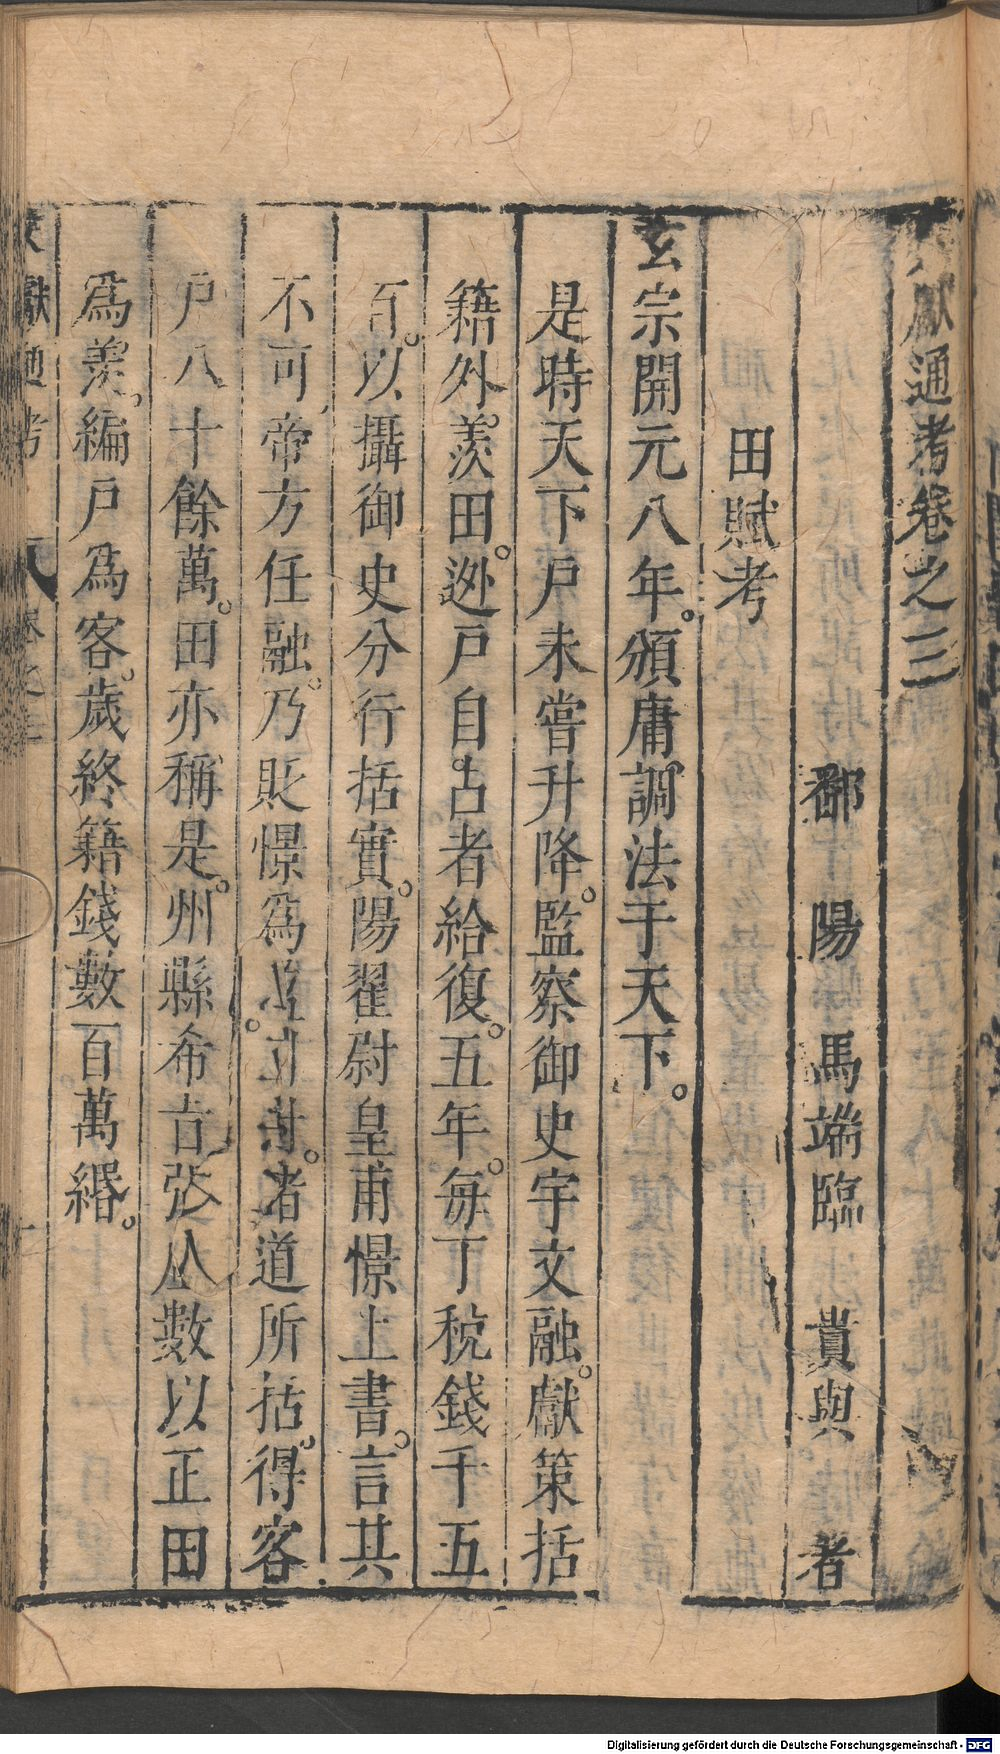 獻通考卷之三
鄱陽馬端臨貴與著
田賦考
玄宗開元八年。頒庸調法于天下。
是時天下戶未嘗升降。監察御史宇文融。獻策括
籍外。羨田。逃戶自占者給復。五年。每丁稅錢千五
百。以攝御史分行括實。陽翟尉皇甫憬上書。言其
不可帝方任融。乃貶憬爲者道所括。得客
戶八十餘萬。田亦稱是。州縣希張數以正田
爲羨。編戶爲客。歲終籍錢數百萬緡。
獻通考
Digitalisierung gefördert durch die Deutsche Forschungsgemeinschaft - DFG